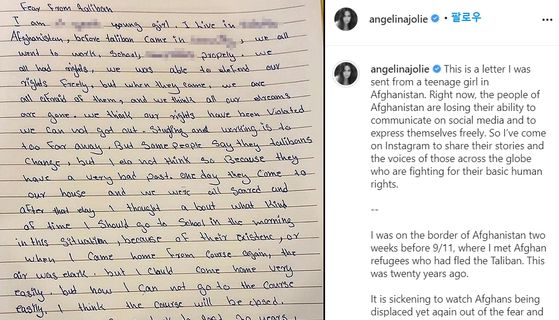 Fear From Taliban
I am young girl. I live in
Afghanistan, before taliban came in , we all
went to work, school, propely. we
all had rights, we was able to defend our
rights freely, but when they came, we are
all afraid of them, and we think all our dreams
are gone. we think our rights have been Violated
we can not got out. Studing and working is to
too far away. But some people say they talibans
Change, but I do not think so Because they
have a very bad past. one day they come to
our house and we were all scared and
after that day I thought a bout what kind
of time I should go to School in the morning
in this situation, because of their existenc, or
when I came home from Course again, the
air was dark. but I could come home very
easily. but now I can not go to the Course
easily, I think the course will be closed.
20 years,
angelinajolie • 팔로우
angelinajolie This is a letter I was
sent from a teenage girl in
Afghanistan. Right now, the people of
Afghanistan are losing their ability to
communicate on social media and to
express themselves freely. So I've come
on Instagram to share their stories and
the voices of those across the globe
who are fighting for their basic human
rights.
--
I was on the border of Afghanistan two
weeks before 9/11, where I met Afghan
refugees who had fled the Taliban. This
was twenty years ago.
It is sickening to watch Afghans being
displaced yet again out of the fear and